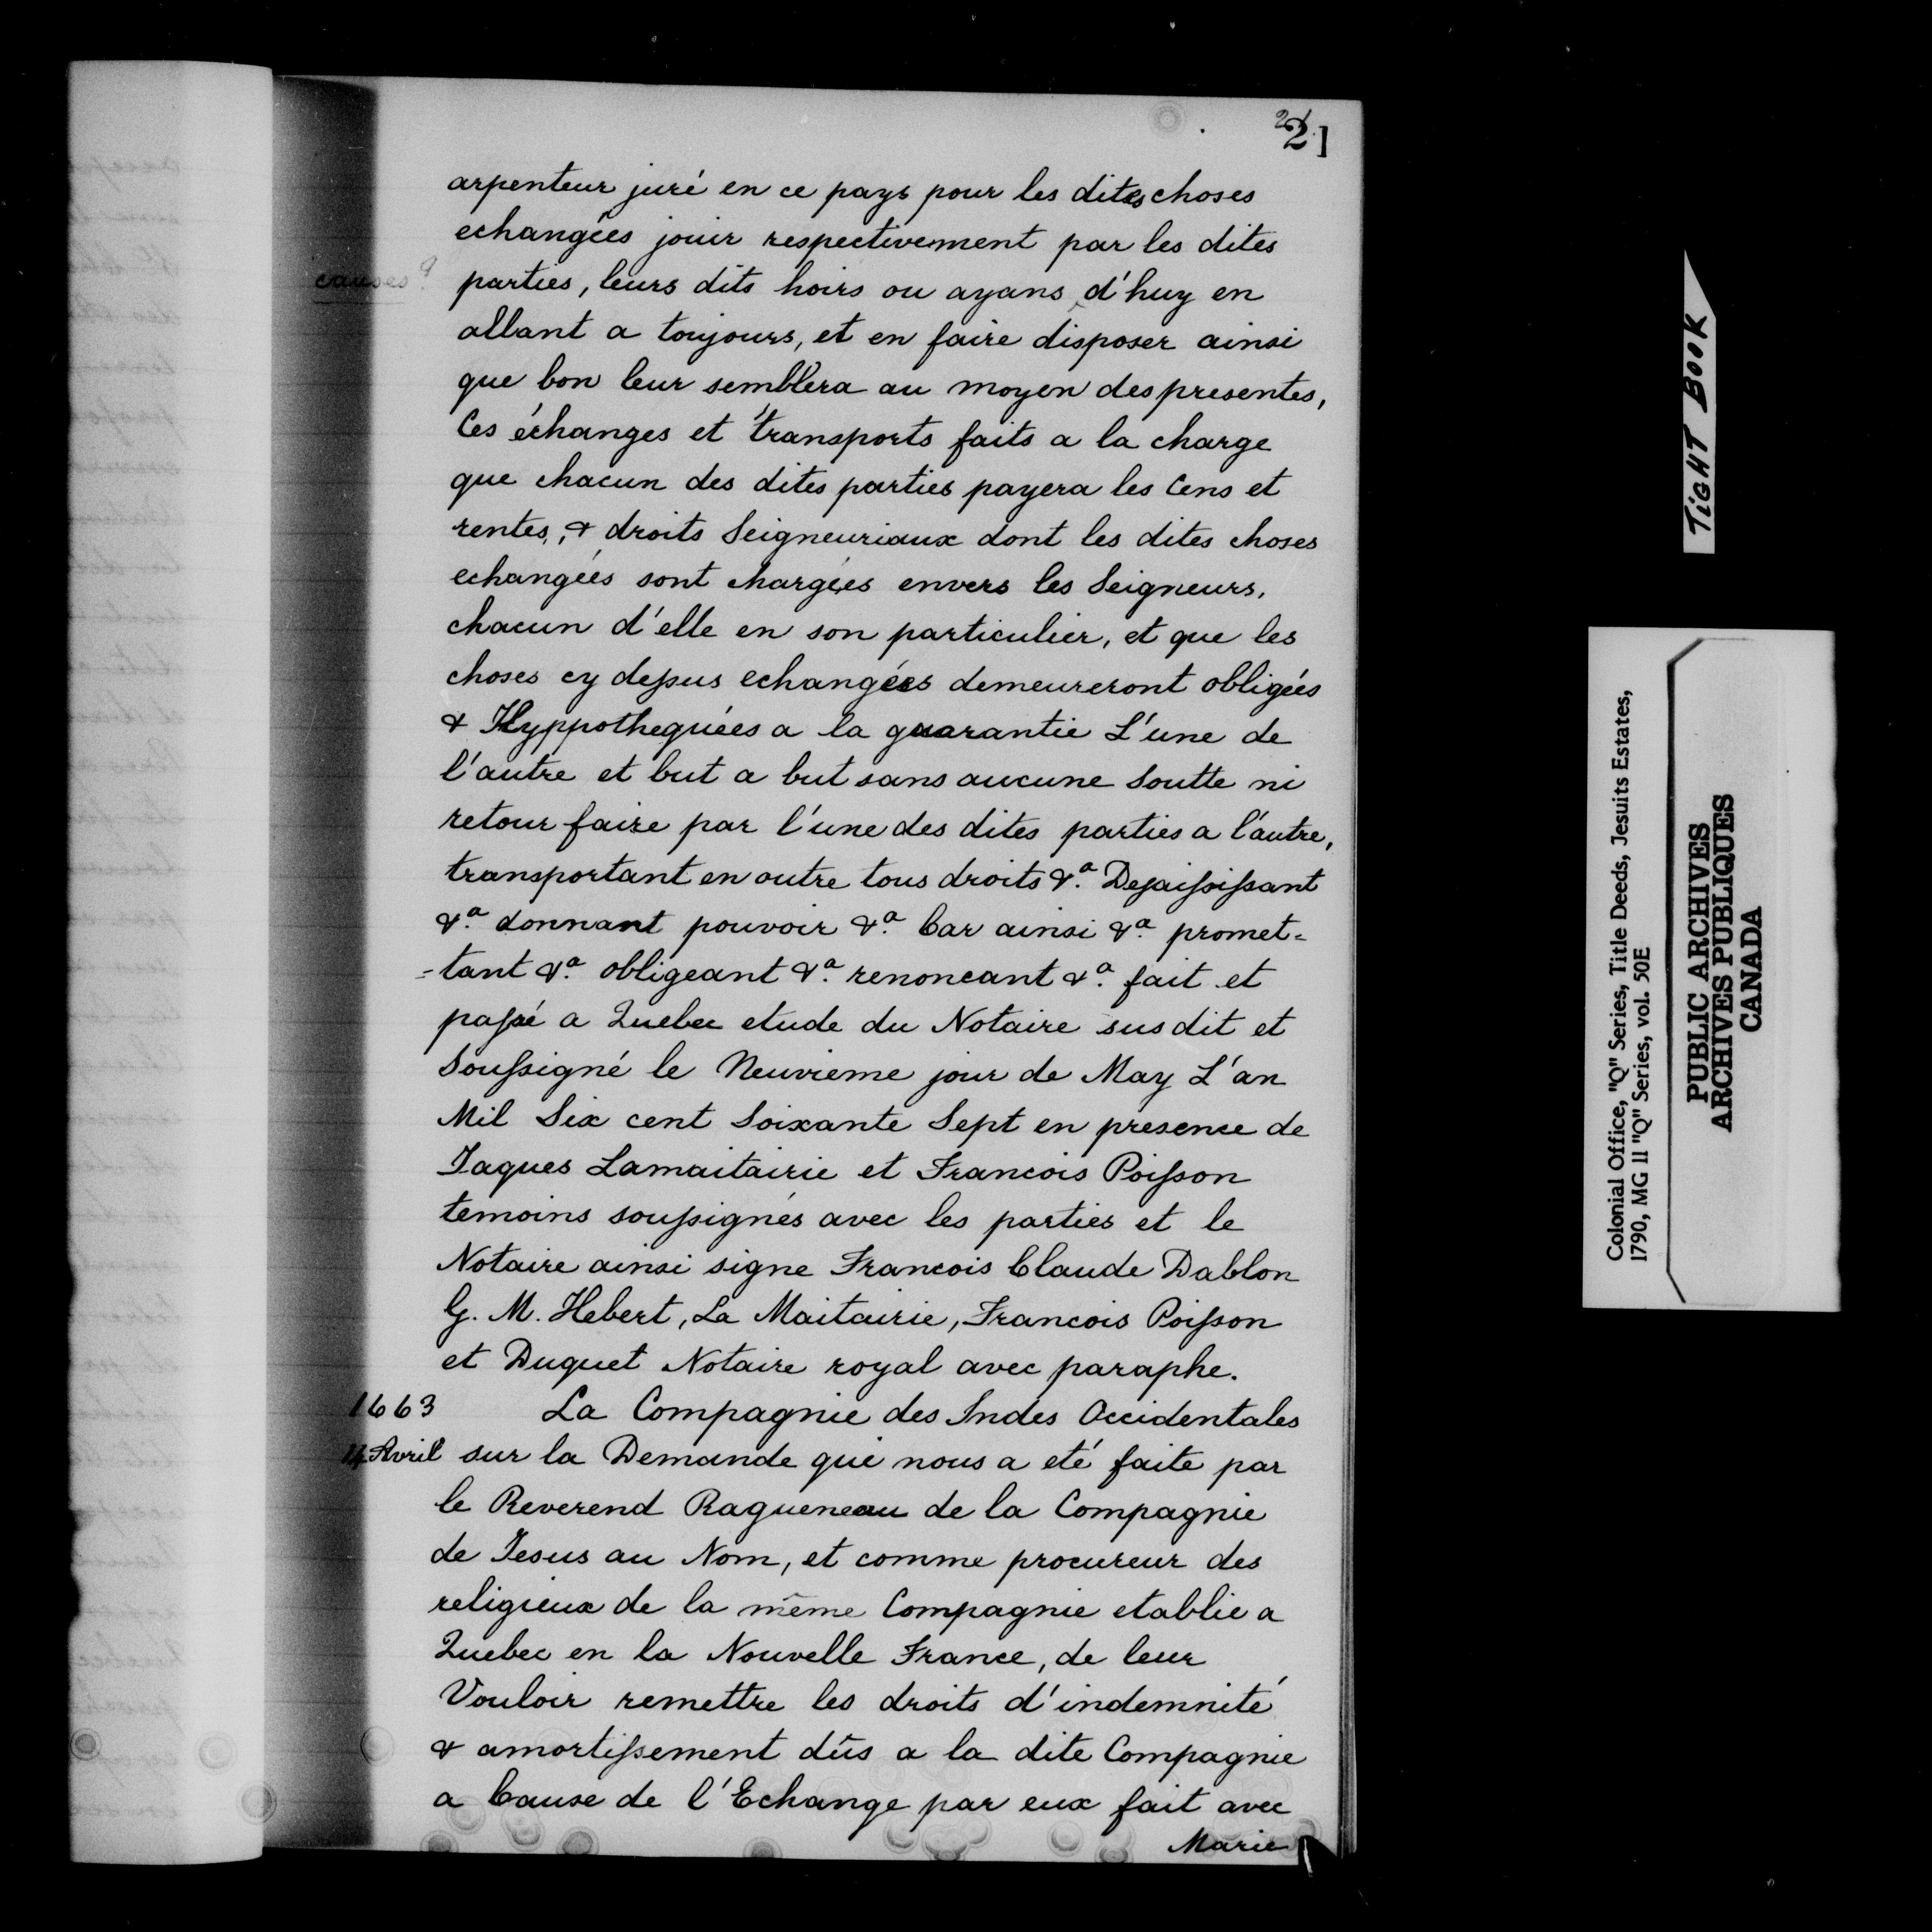 21
21
arpenteur juré en ce pays pour les dites choses
echangées jouir respectivement par les dites
causes?
parties, leurs dits hoirs ou ayans d'huy en
allant a toujours, et en faire disposer ainsi
que bon leur semblera au moyen des presentes,
Ces échanges et transports faits a la charge
que chacun des dites parties payera les Cens et
rentes, & droits Seigneuriaux dont les dites choses
echangées sont chargées envers les Seigneurs,
chacun d'elle en son particulier, et que les
choses cy deſsus echangées demeureront obligées
& Hyppothequées a la guarantie L'une de
l'autre et but a but sans aucune Soutte ni
retour faire par l'une des dites parties a l'autre,
transportant en outre tous droits &a. Desaisiſsant
&a. donnant pouvoir &a. Car ainsi &a. promet=
=tant &a. obligeant &a. renoncant &a. fait et
paſsé a Quebec etude du Notaire sus dit et
Souſsigné le Neuvieme jour de May L'an
Mil Six cent Soixante Sept en presence de
Jaques Lamaitairie et Francois Poiſson
temoins souſsignés avec les parties et le
Notaire ainsi signe Francois Claude Dablon
G. M. Hebert, La Maitairie, Francois Poiſson
et Duquet Notaire royal avec paraphe.
1663 La Compagnie des Indes Occidentales
14 Avril sur la Demande qui nous a eté faite par
le Reverend Ragueneau de la Compagnie
de Jesus au Nom, et comme procureur des
religieux de la même Compagnie etablie a
Quebec en la Nouvelle France, de leur
Vouloir remettre les droits d'indemnité
& amortiſsement dûs a la dite Compagnie
a Cause de l'Echange par eux fait avec
Marie
TIGHT BOOK
Colonial Office, "Q" Series, Title Deeds, Jesuits Estates,
1790, MG 11 "Q" Series, vol. 50E
PUBLIC ARCHIVES
ARCHIVES PUBLIQUES
CANADA